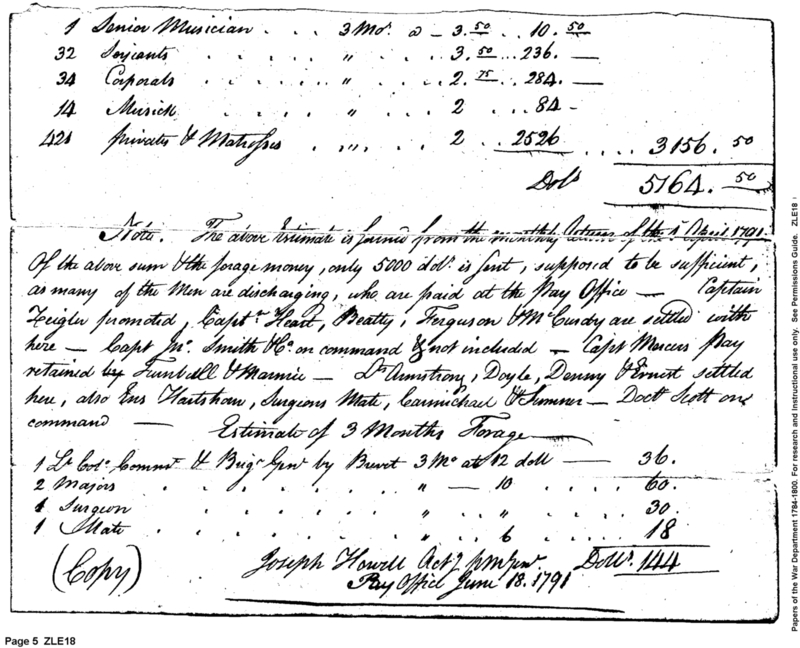 1 Senior Musician . . . 3 Mos. a - 3.50 . . 10.50
32 Serjeants . . . . . " . . 3.50 . . . 236. —
34 Corporals . . . . . " . . 2.75 . . . 284. —
14 Musick . . . . . " . . 2 . . . 84 -
421 privates & Matrosses . . " . . 2 . . 2526 . . . . 3156.50
Dols 5764.50
Note. The above Estimate is formed from the monthly Return of the 1st April 1791.
Of the above sum & the forage money, only 5000 dols. is sent, supposed to be sufficient,
as many of the Men are discharging, who are paid at the Pay Office — Captain
Zeigler promoted, Captn. Heart, Beatty, Ferguson & McCurdy are settled with
here — Capt Jno. Smith & Co. on command & not included — Capt Mercers Pay
retained by Turnbull & Marmie — Lts Armstrong, Doyle, Denny & Ernest settled
here, also Ens Hartshorn, Surgeons Mate, Carmichael & Sumner — Doct Scott on
command —
Estimate of 3 Months Forage
1 Lt. Col. Commt. & Brigr. Genl. by Brevet 3 Mo at 12 doll — 36.
2 Majors . . . . . . " — 10 . . . . 60.
1 Surgeon . . . . . . " " . . . . 30.
1 Mate . . . . . . " 6 . . . . 18
(Copy)
Joseph Howell Actg pmGenl. Dolls. 144
Pay Office June 18. 1791
Page 5 ZLE18
Papers of the War Department 1784-1800. For research and instructional use only. See Permissions Guide. ZLE18